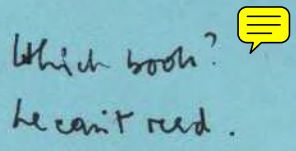 Which book?
he can't read.